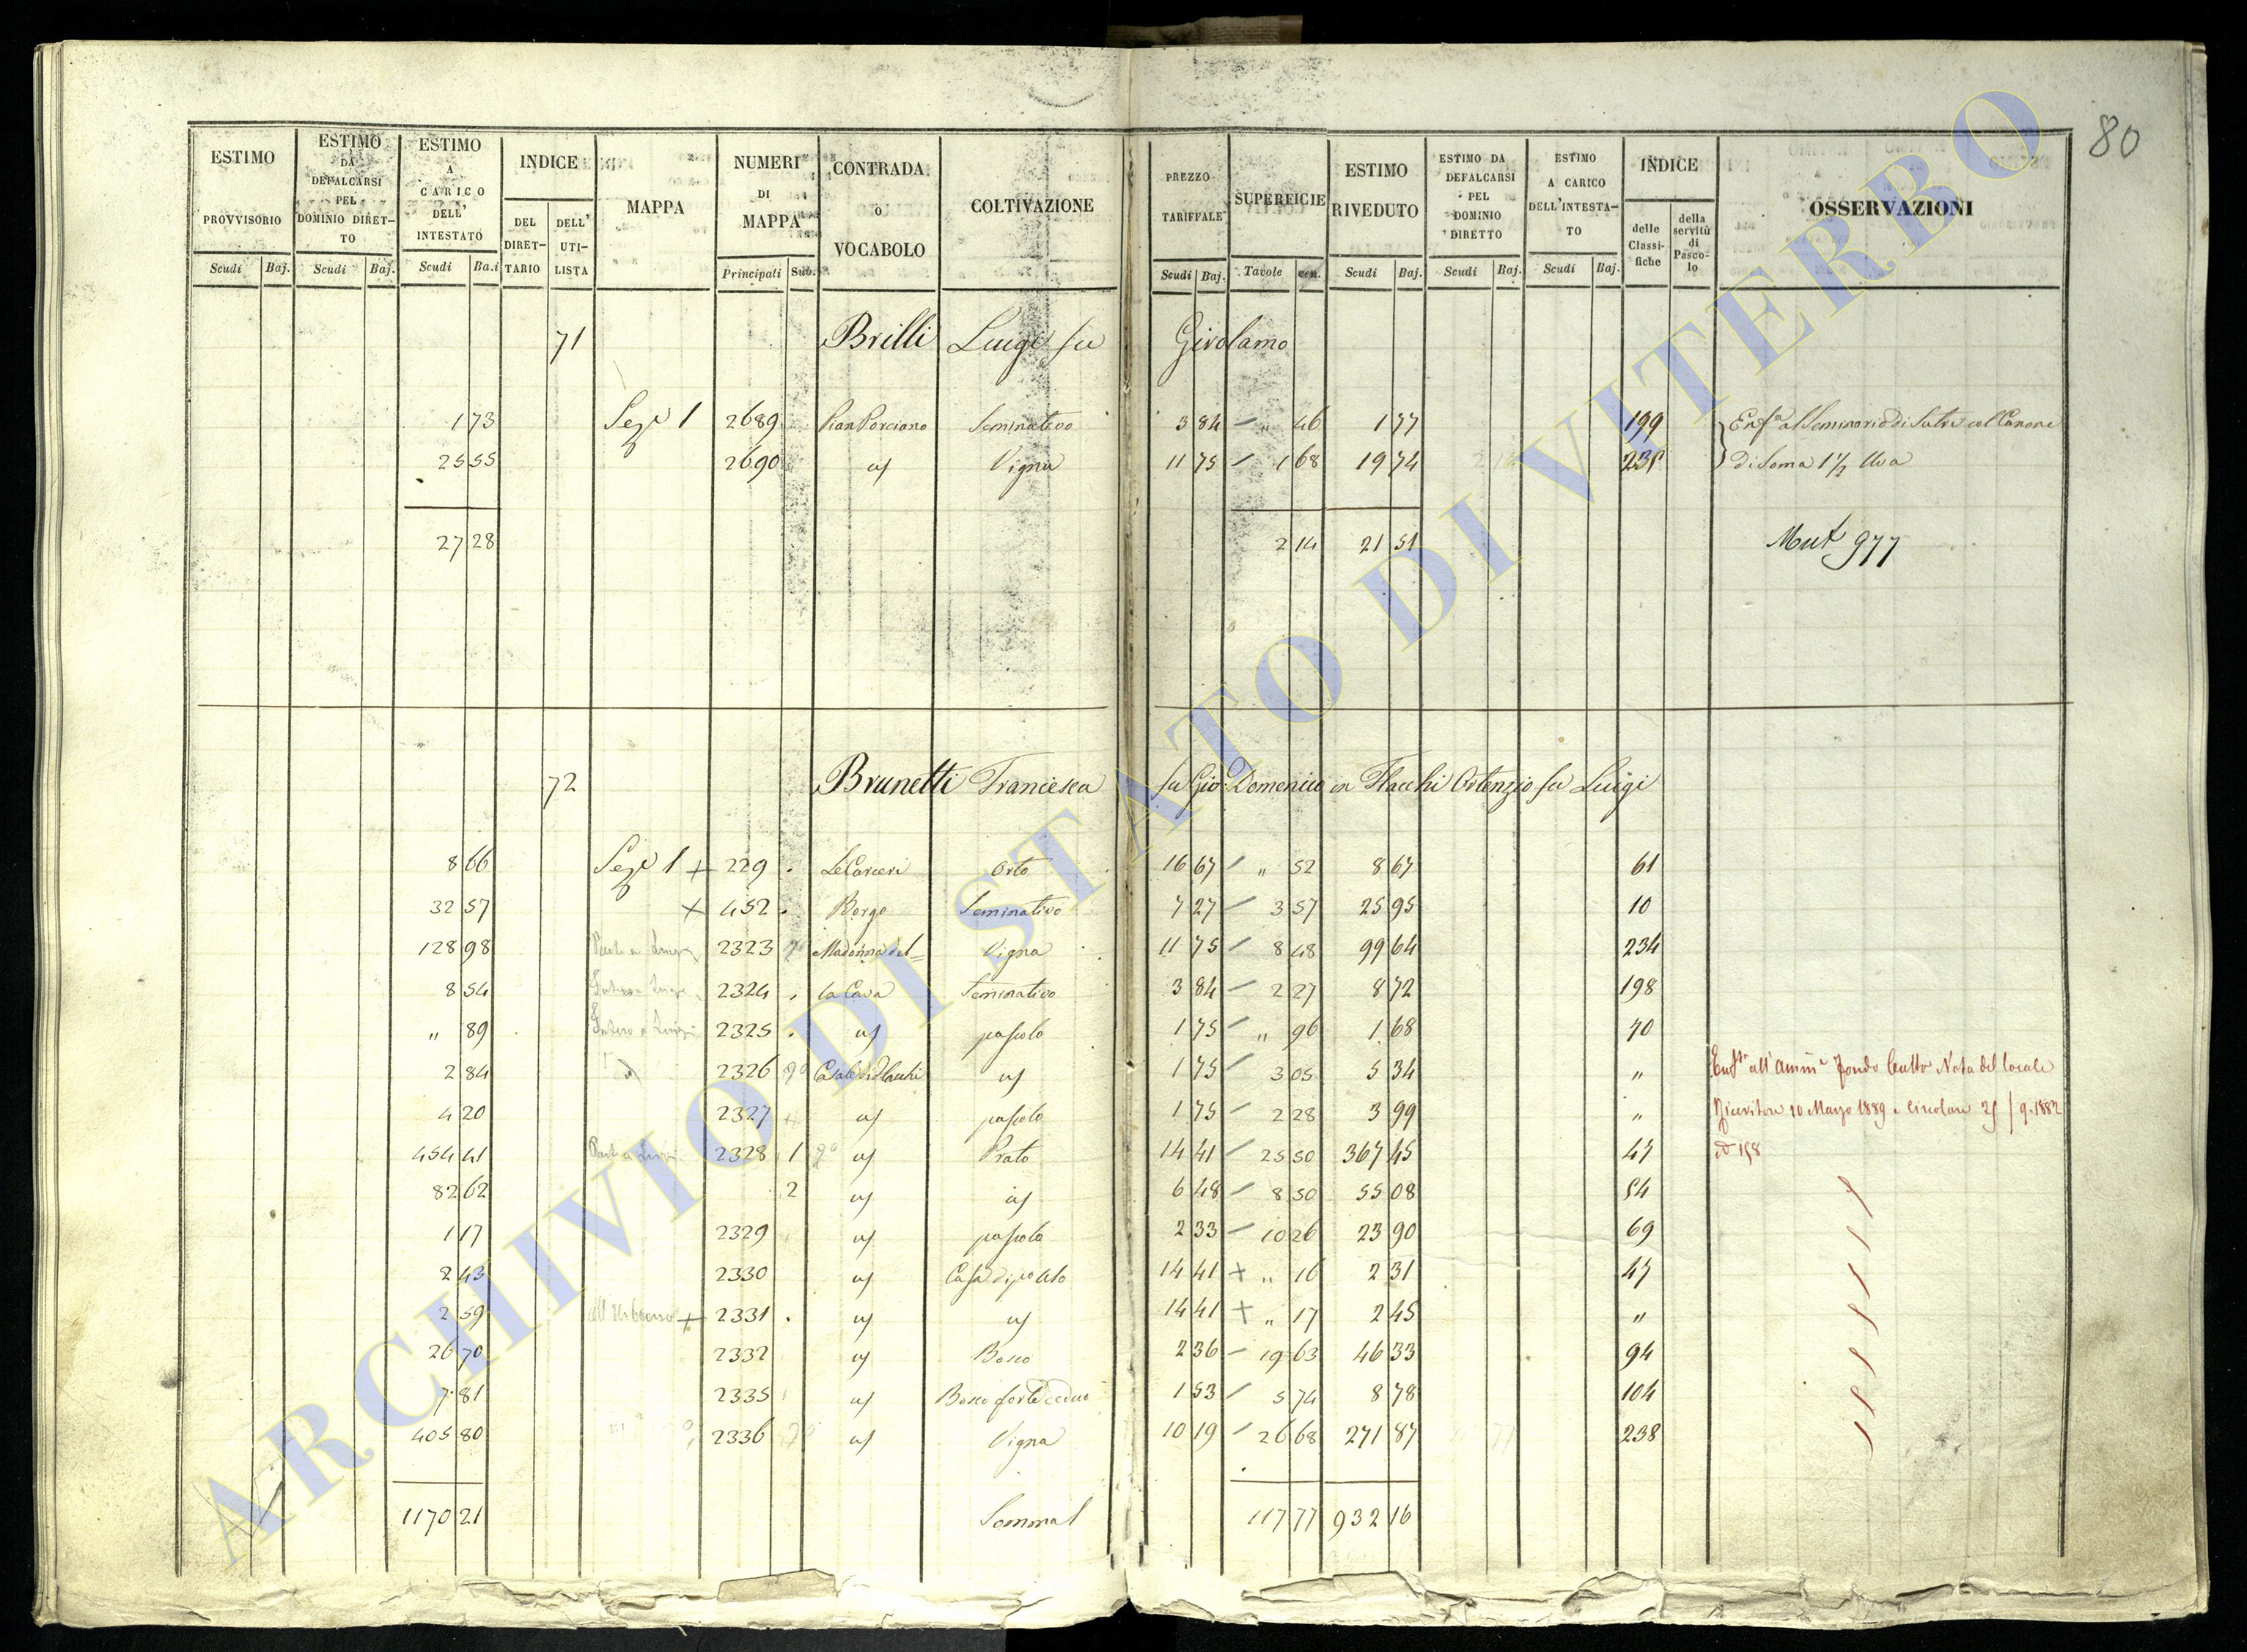 80
ESTIMO PROVVISORIO
ESTIMO DA DEFALCARSI PEL DOMINIO DIRETTO
ESTIMO A CARICO DELL' INTESTATO
INDICE
DEL DIRETTARIO
DELL' UTILISTA
MAPPA
NUMERI DI MAPPA
CONTRADA O VOCABOLO
COLTIVAZIONE
PREZZO TARIFFALE
SUPERFICIE
ESTIMO RIVEDUTO
ESTIMO DA DEFALCARSI PEL DOMINIO DIRETTO
ESTIMO A CARICO DELL'INTESTATO
INDICE
delle Classifiche
della servitù di Pascolo
OSSERVAZIONI
Scudi Baj. Scudi Baj. Scudi Baj. Principali Sub. Scudi Baj. Tavole cen. Scudi Baj. Scudi Baj. Scudi Baj.
71 Brilli Luigi fu Girolamo
1 73 Sez.e 1 2689 Pian Porciano Seminativo 3 84 " 46 1 77 199 Enf.a al Seminario di Sutri col Canone
25 55 2690 id Vigna 11 75 1 68 19 74 235 di Soma 1 1/2 Uva
27 28 2 14 21 51 Mut 977
72 Brunetti Francesca fu Gio: Domenico in Flacchi Ortenzio fu Luigi
8 66 Sez.e 1 + 229 Le Carceri Orto 16 67 " 52 8 67 61
32 57 + 452 Borgo Seminativo 7 27 3 57 25 95 10
128 98 2323 Madonna del= Vigna 11 75 8 48 99 64 234
8 54 2324 la Cava Seminativo 3 84 2 27 8 72 198
" 89 2325 id pascolo 1 75 " 96 1 68 70
2 84 2326 Casale di Flacchi id 1 75 3 05 5 34 " all'Amm.e Fondo Culto Nota del locale
4 20 2327 id pascolo 1 75 2 28 3 99 " Ricevitore 10 Marzo 1889 e Circolare
454 41 2328 1 id Prato 14 41 25 50 367 45 47
82 62 2 id id 6 48 8 50 55 08 54
1 17 2329 id pascolo 2 33 10 26 23 90 69
2 43 2330 id Casa 14 41 + " 16 2 31 47
2 59 + 2331 id id 14 41 + " 17 2 45 "
26 70 2332 id Bosco 2 36 19 63 46 33 94
7 81 2335 id Bosco forte ceduo 1 53 5 74 8 78 104
405 80 2336 id Vigna 10 19 26 68 271 87 238
1170 21 Somma 117 77 932 16
ARCHIVIO DI STATO DI VITERBO